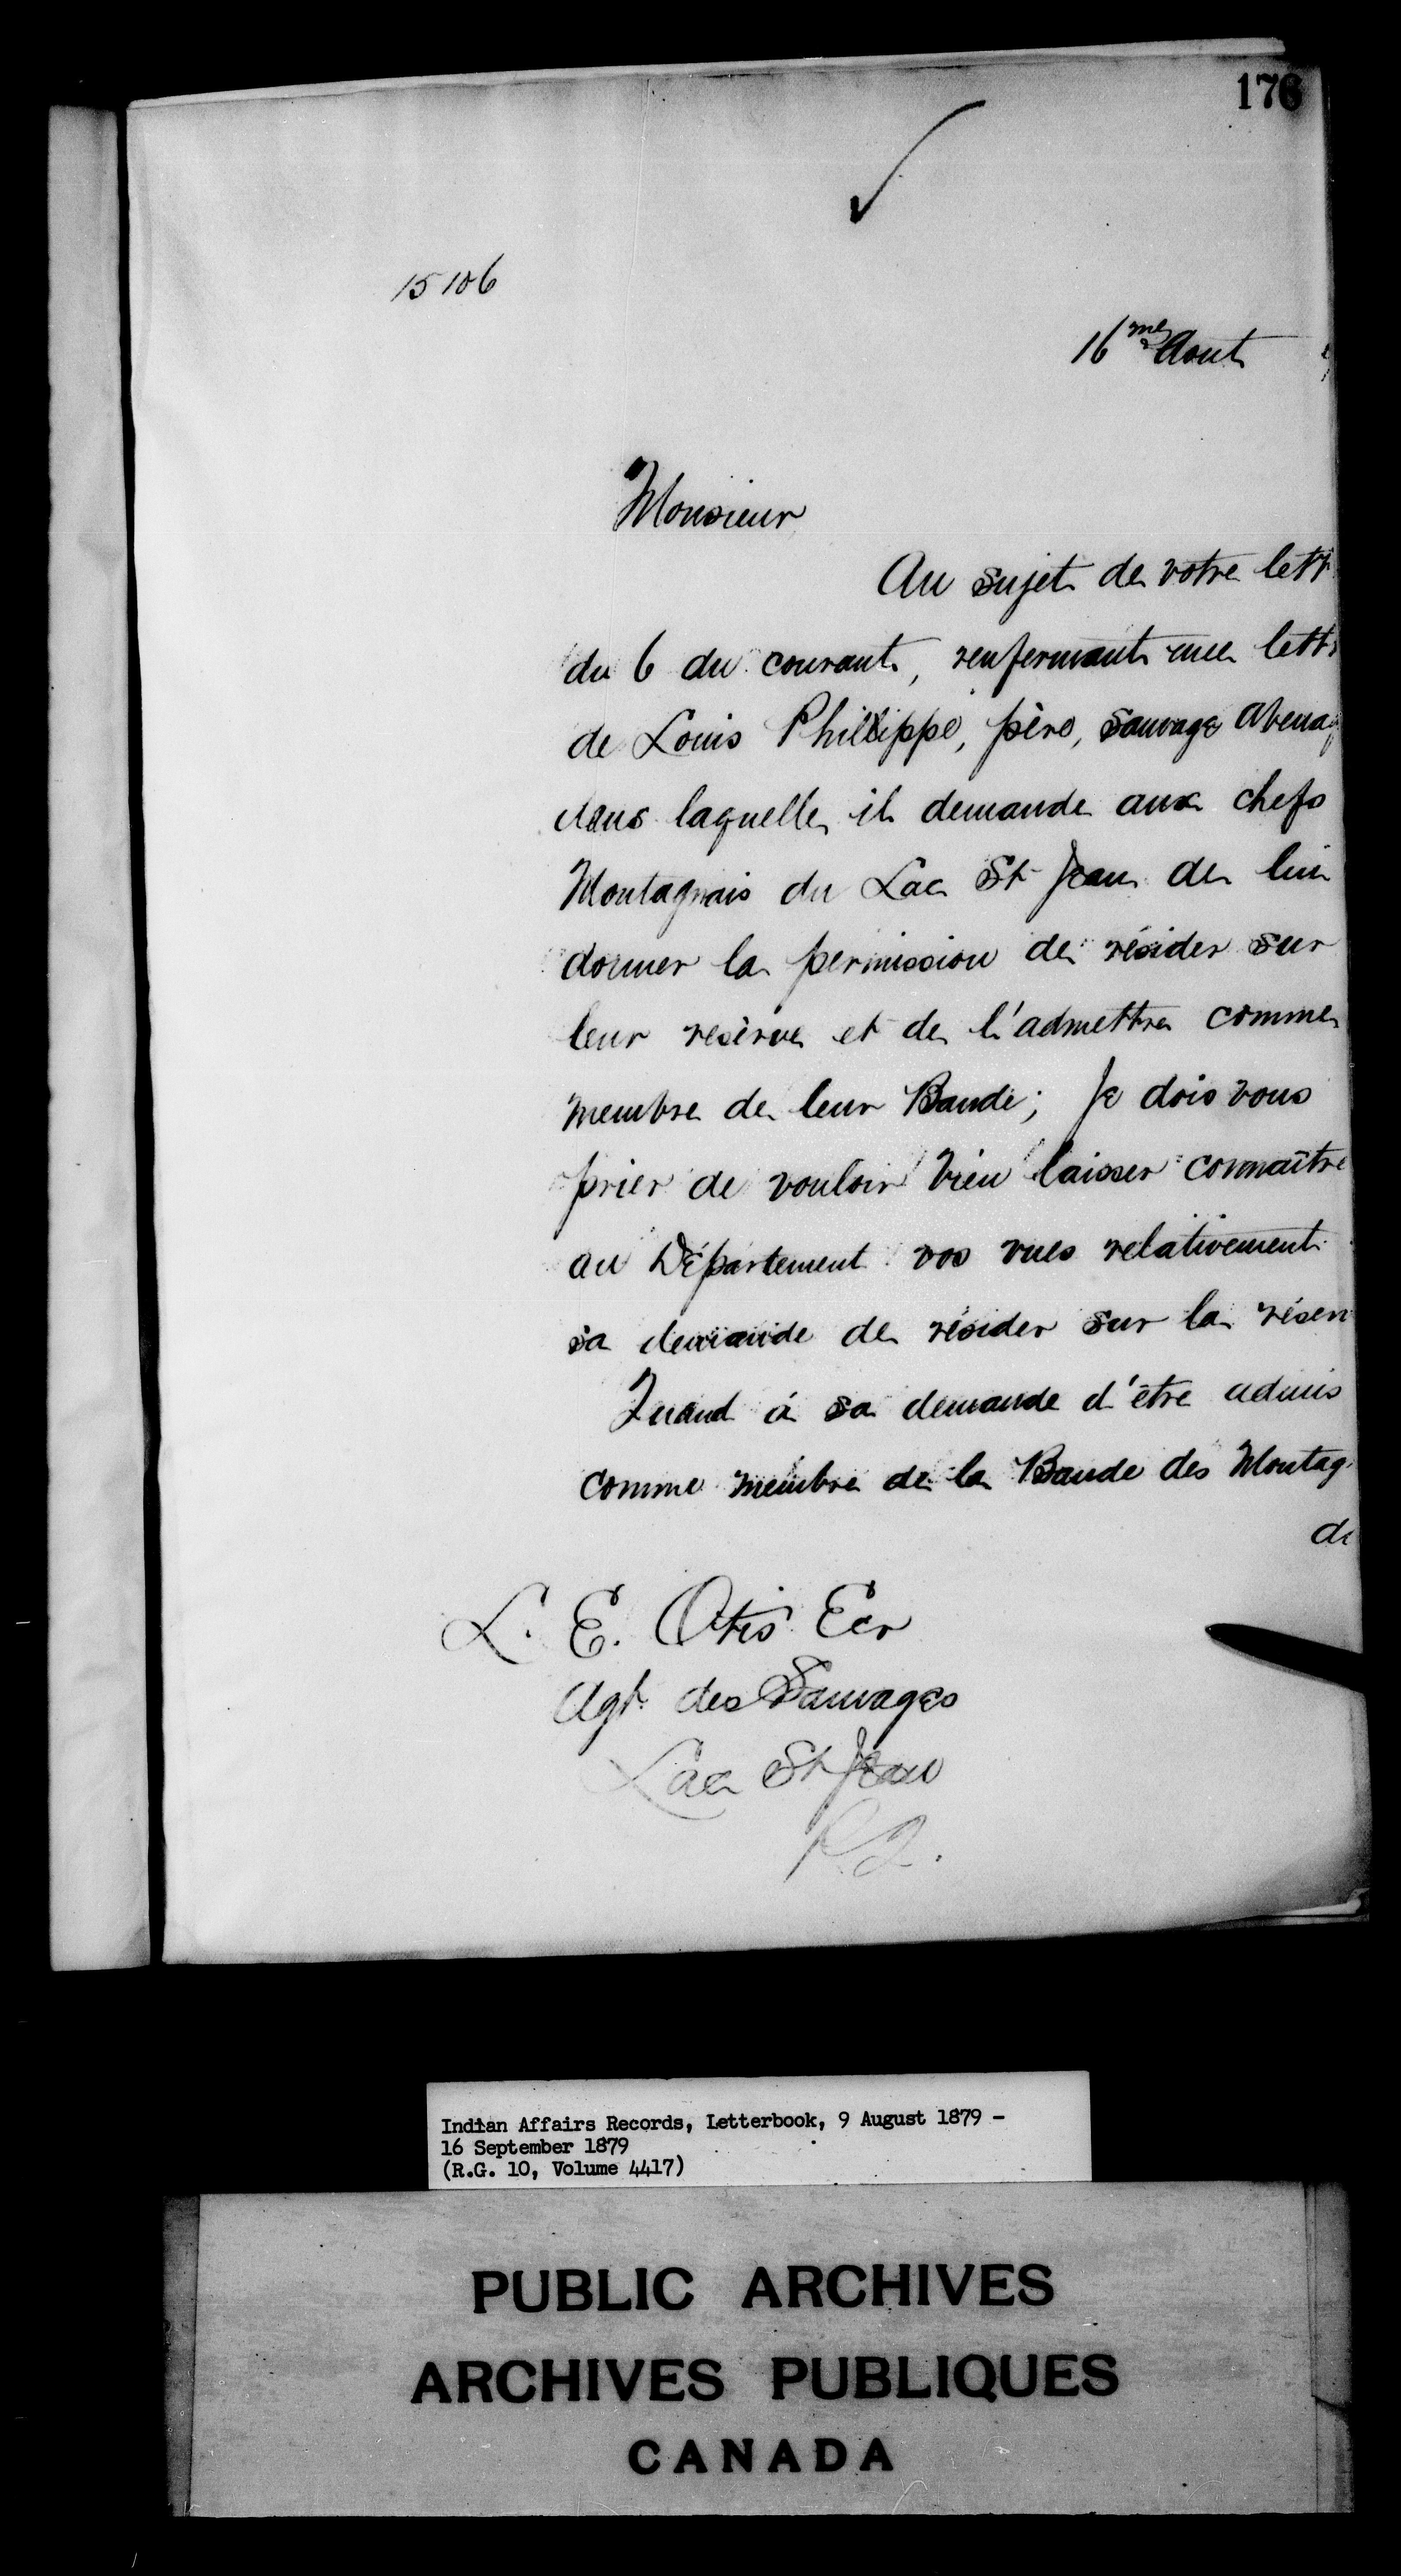 176
15106
16me Aout
Monsieur
Au sujet de votre lettr
du 6 du courant, renfermant une lettr
de Louis Phillippe, père, Sauvage Abenaq
dans laquelle il demande aux chefs
Montagnais du Lac St Jean de lui
donner la permission de résider sur
leur resèrve et de l'admettre comme
membre de leur Bande; Je dois vous
prier de vouloir bien laisser connaître
au Département vos vues relativement
sa demande de résider sur la réserv
Quand á sa demande d'être admis
comme membre de la Bande des Montag
de
L. E. Otis Ecr
Agt. des Sauvages
Lac St Jean
P.Q.
Indian Affairs Records, Letterbook, 9 August 1879 -
16 September 1879
(R.G. 10, Volume 4417)
PUBLIC ARCHIVES
ARCHIVES PUBLIQUES
CANADA